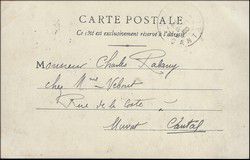 CARTE POSTALE
Ce côté est exclusivement réservé à l'adresse
Monsieur Charles Rabany
chez Mme
Rue de la Coste
Murat Cantal